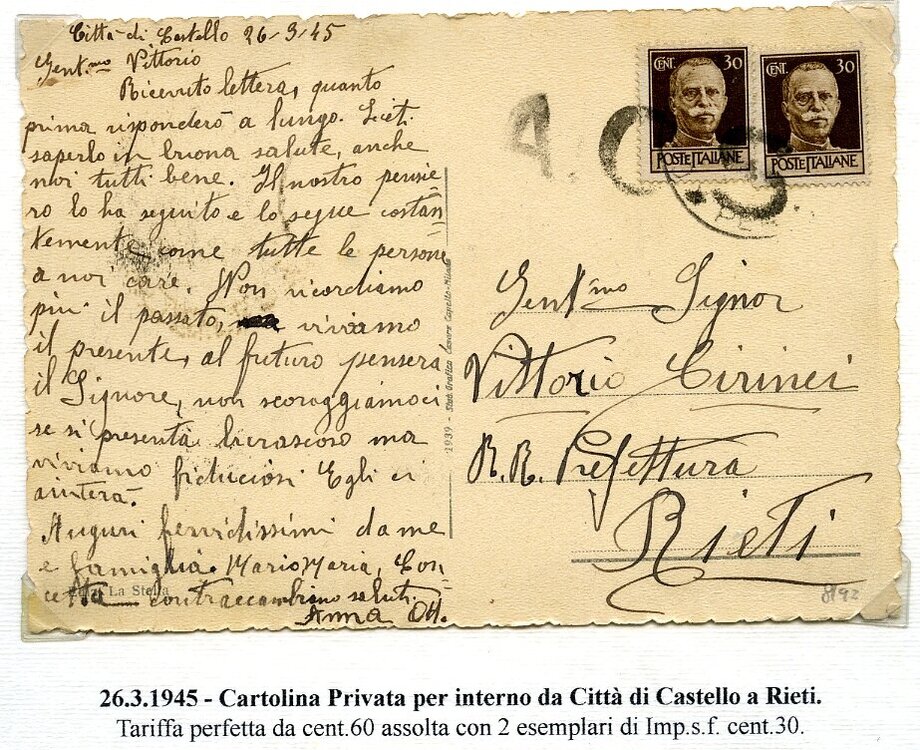 Città di Castello 26-3-45
Gent.mo Vittorio
Ricevuto lettera, quanto
prima risponderò a lungo. Lieti
saperlo in buona salute, anche
noi tutti bene. Il nostro pensie
ro lo ha seguito e lo segue costan
temente come tutte le persone
a noi care. Non ricordiamo
più il passato, viviamo
il presente, al futuro penserà
il Signore, non scoraggiamoci
se si presenta burrascoso ma
viviamo fiduciosi Egli ci
aiuterà.
Auguri fervidissimi da me
e famiglia. Mario Maria, Con
cetta contraccambiano saluti.
Anna
La Stella
1939 - Stab. Grafico Cesare Capello-Milano
CENT. 30
POSTE ITALIANE
CENT. 30
POSTE ITALIANE
Gent.mo Signor
Vittorio Cirinei
R. R. Prefettura
Rieti
8192
26.3.1945 - Cartolina Privata per interno da Città di Castello a Rieti.
Tariffa perfetta da cent.60 assolta con 2 esemplari di Imp.s.f. cent.30.